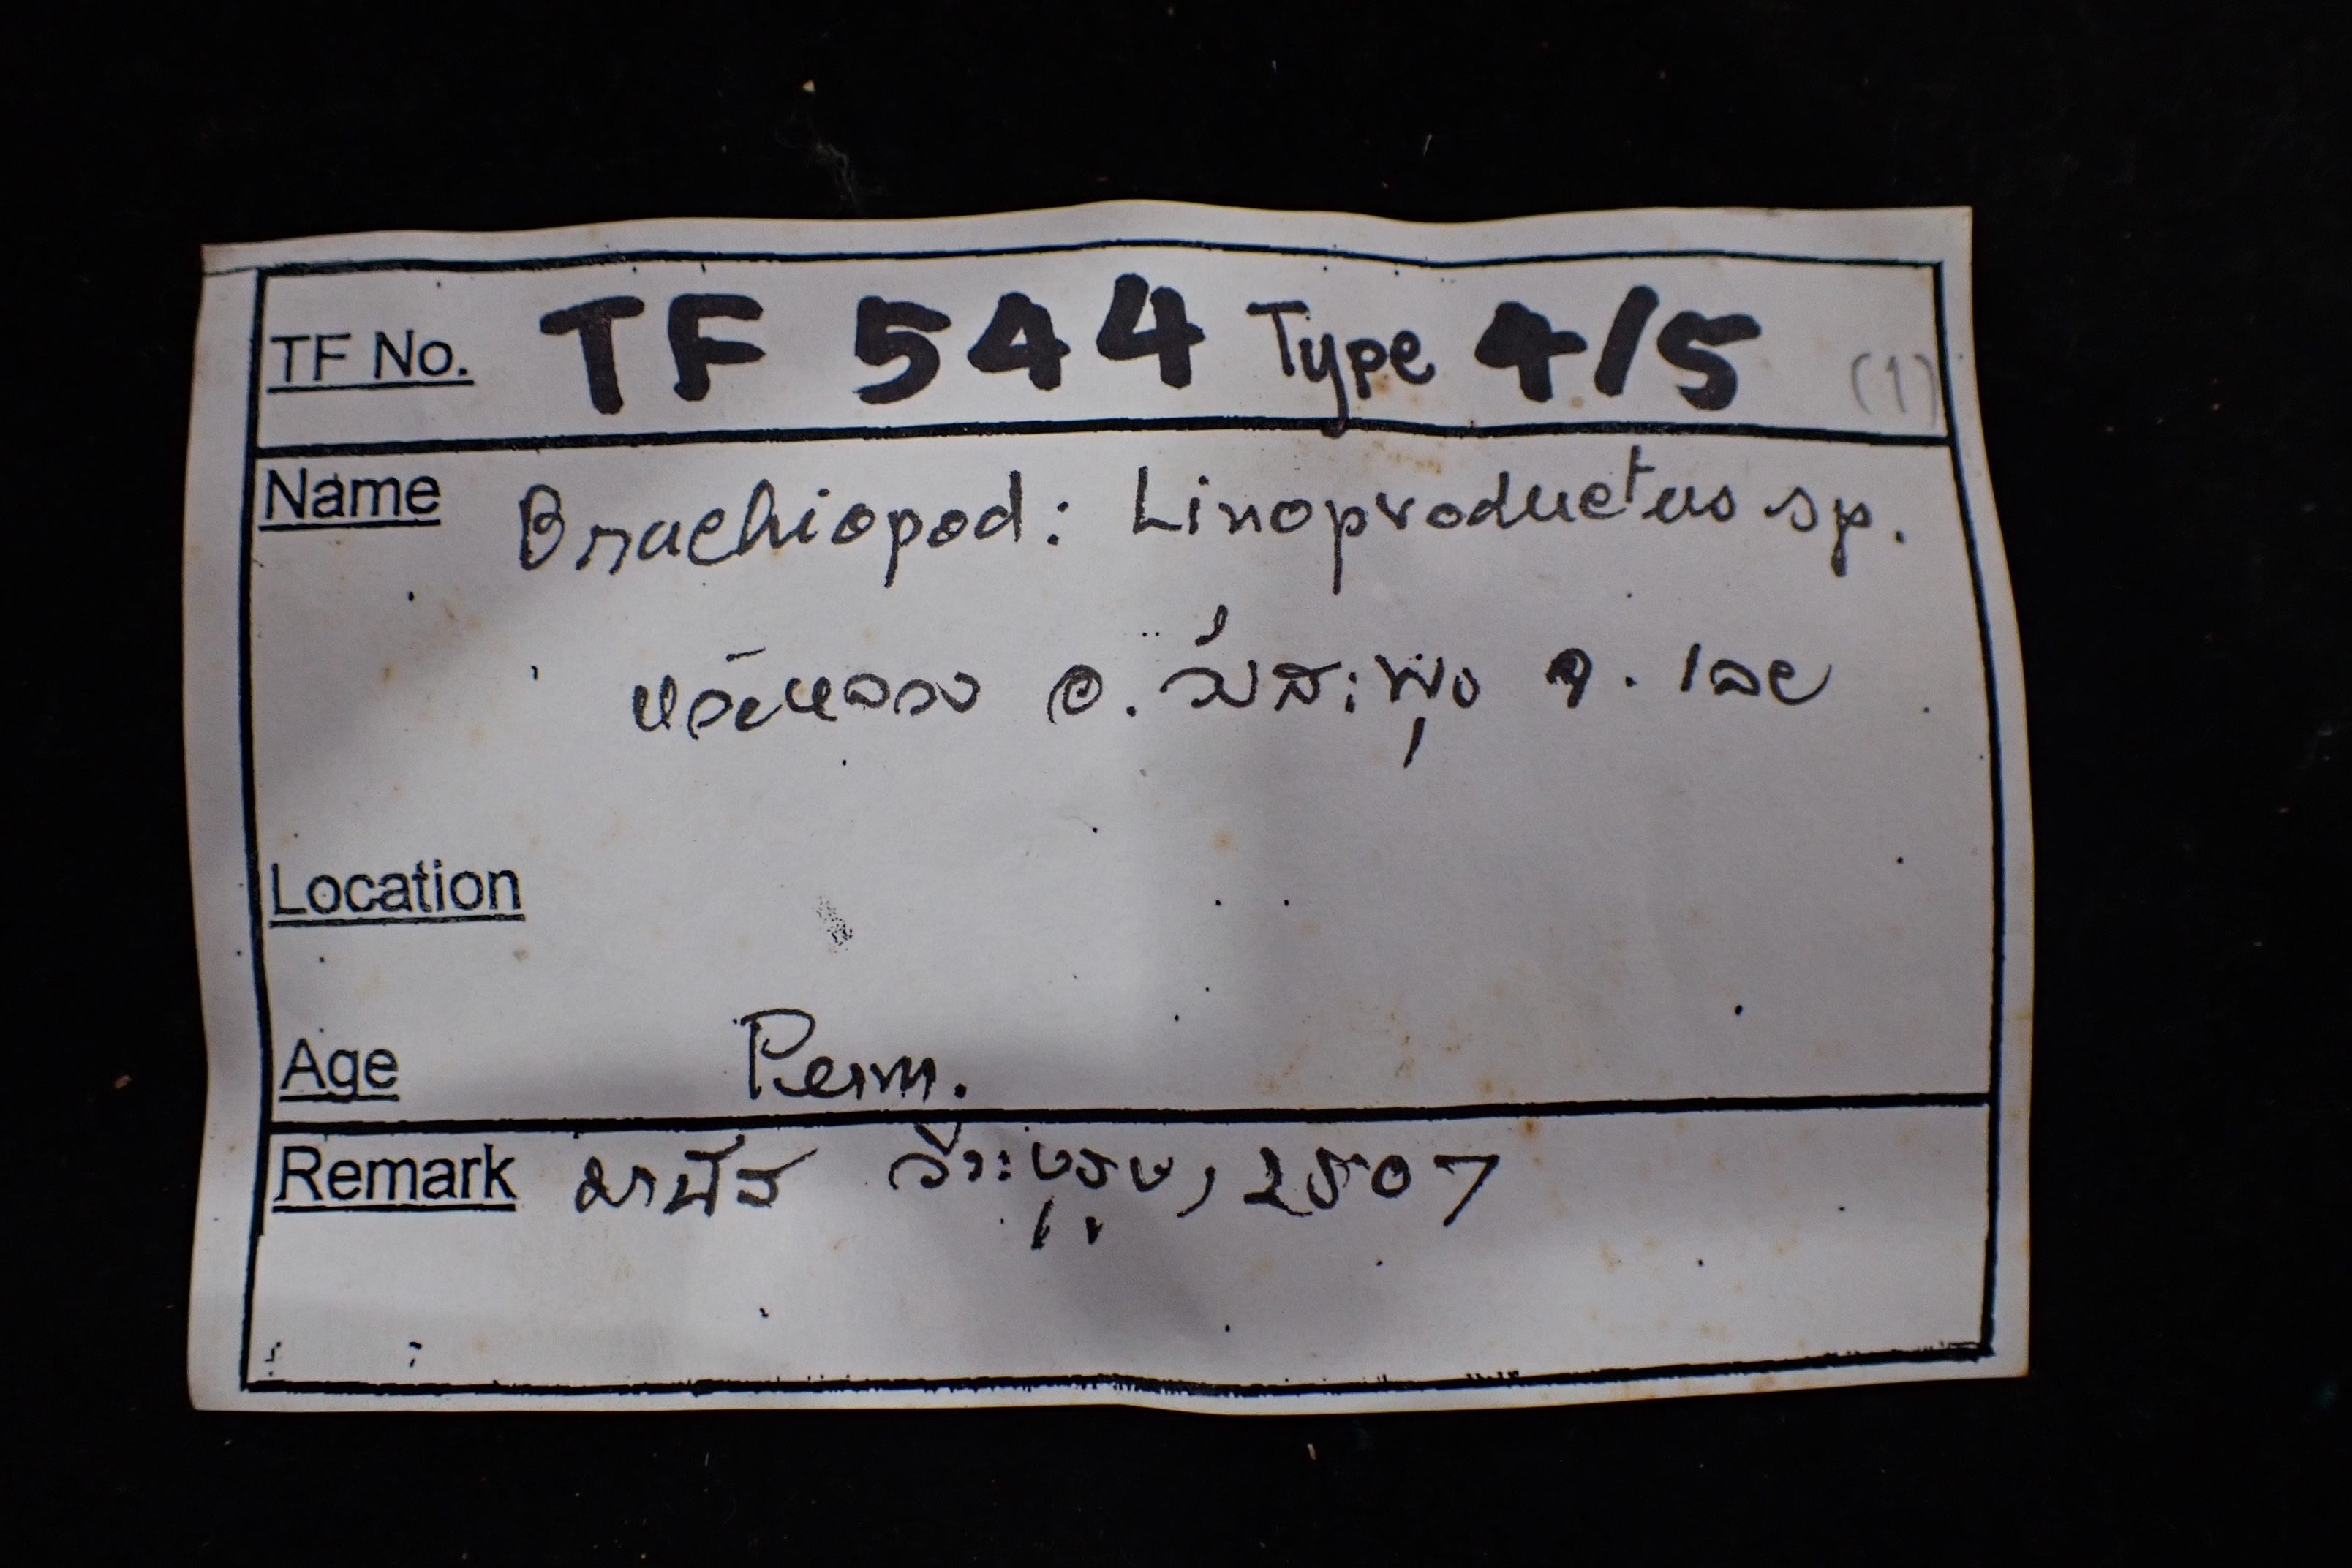 TF No. TF 544 Type 4/5 (1)
Name Brachiopod: Linoproductus sp.
อ. วังสะพุง จ. เลย
Location
Age Perm.
Remark มานัส วีระบุรุษ, 2507